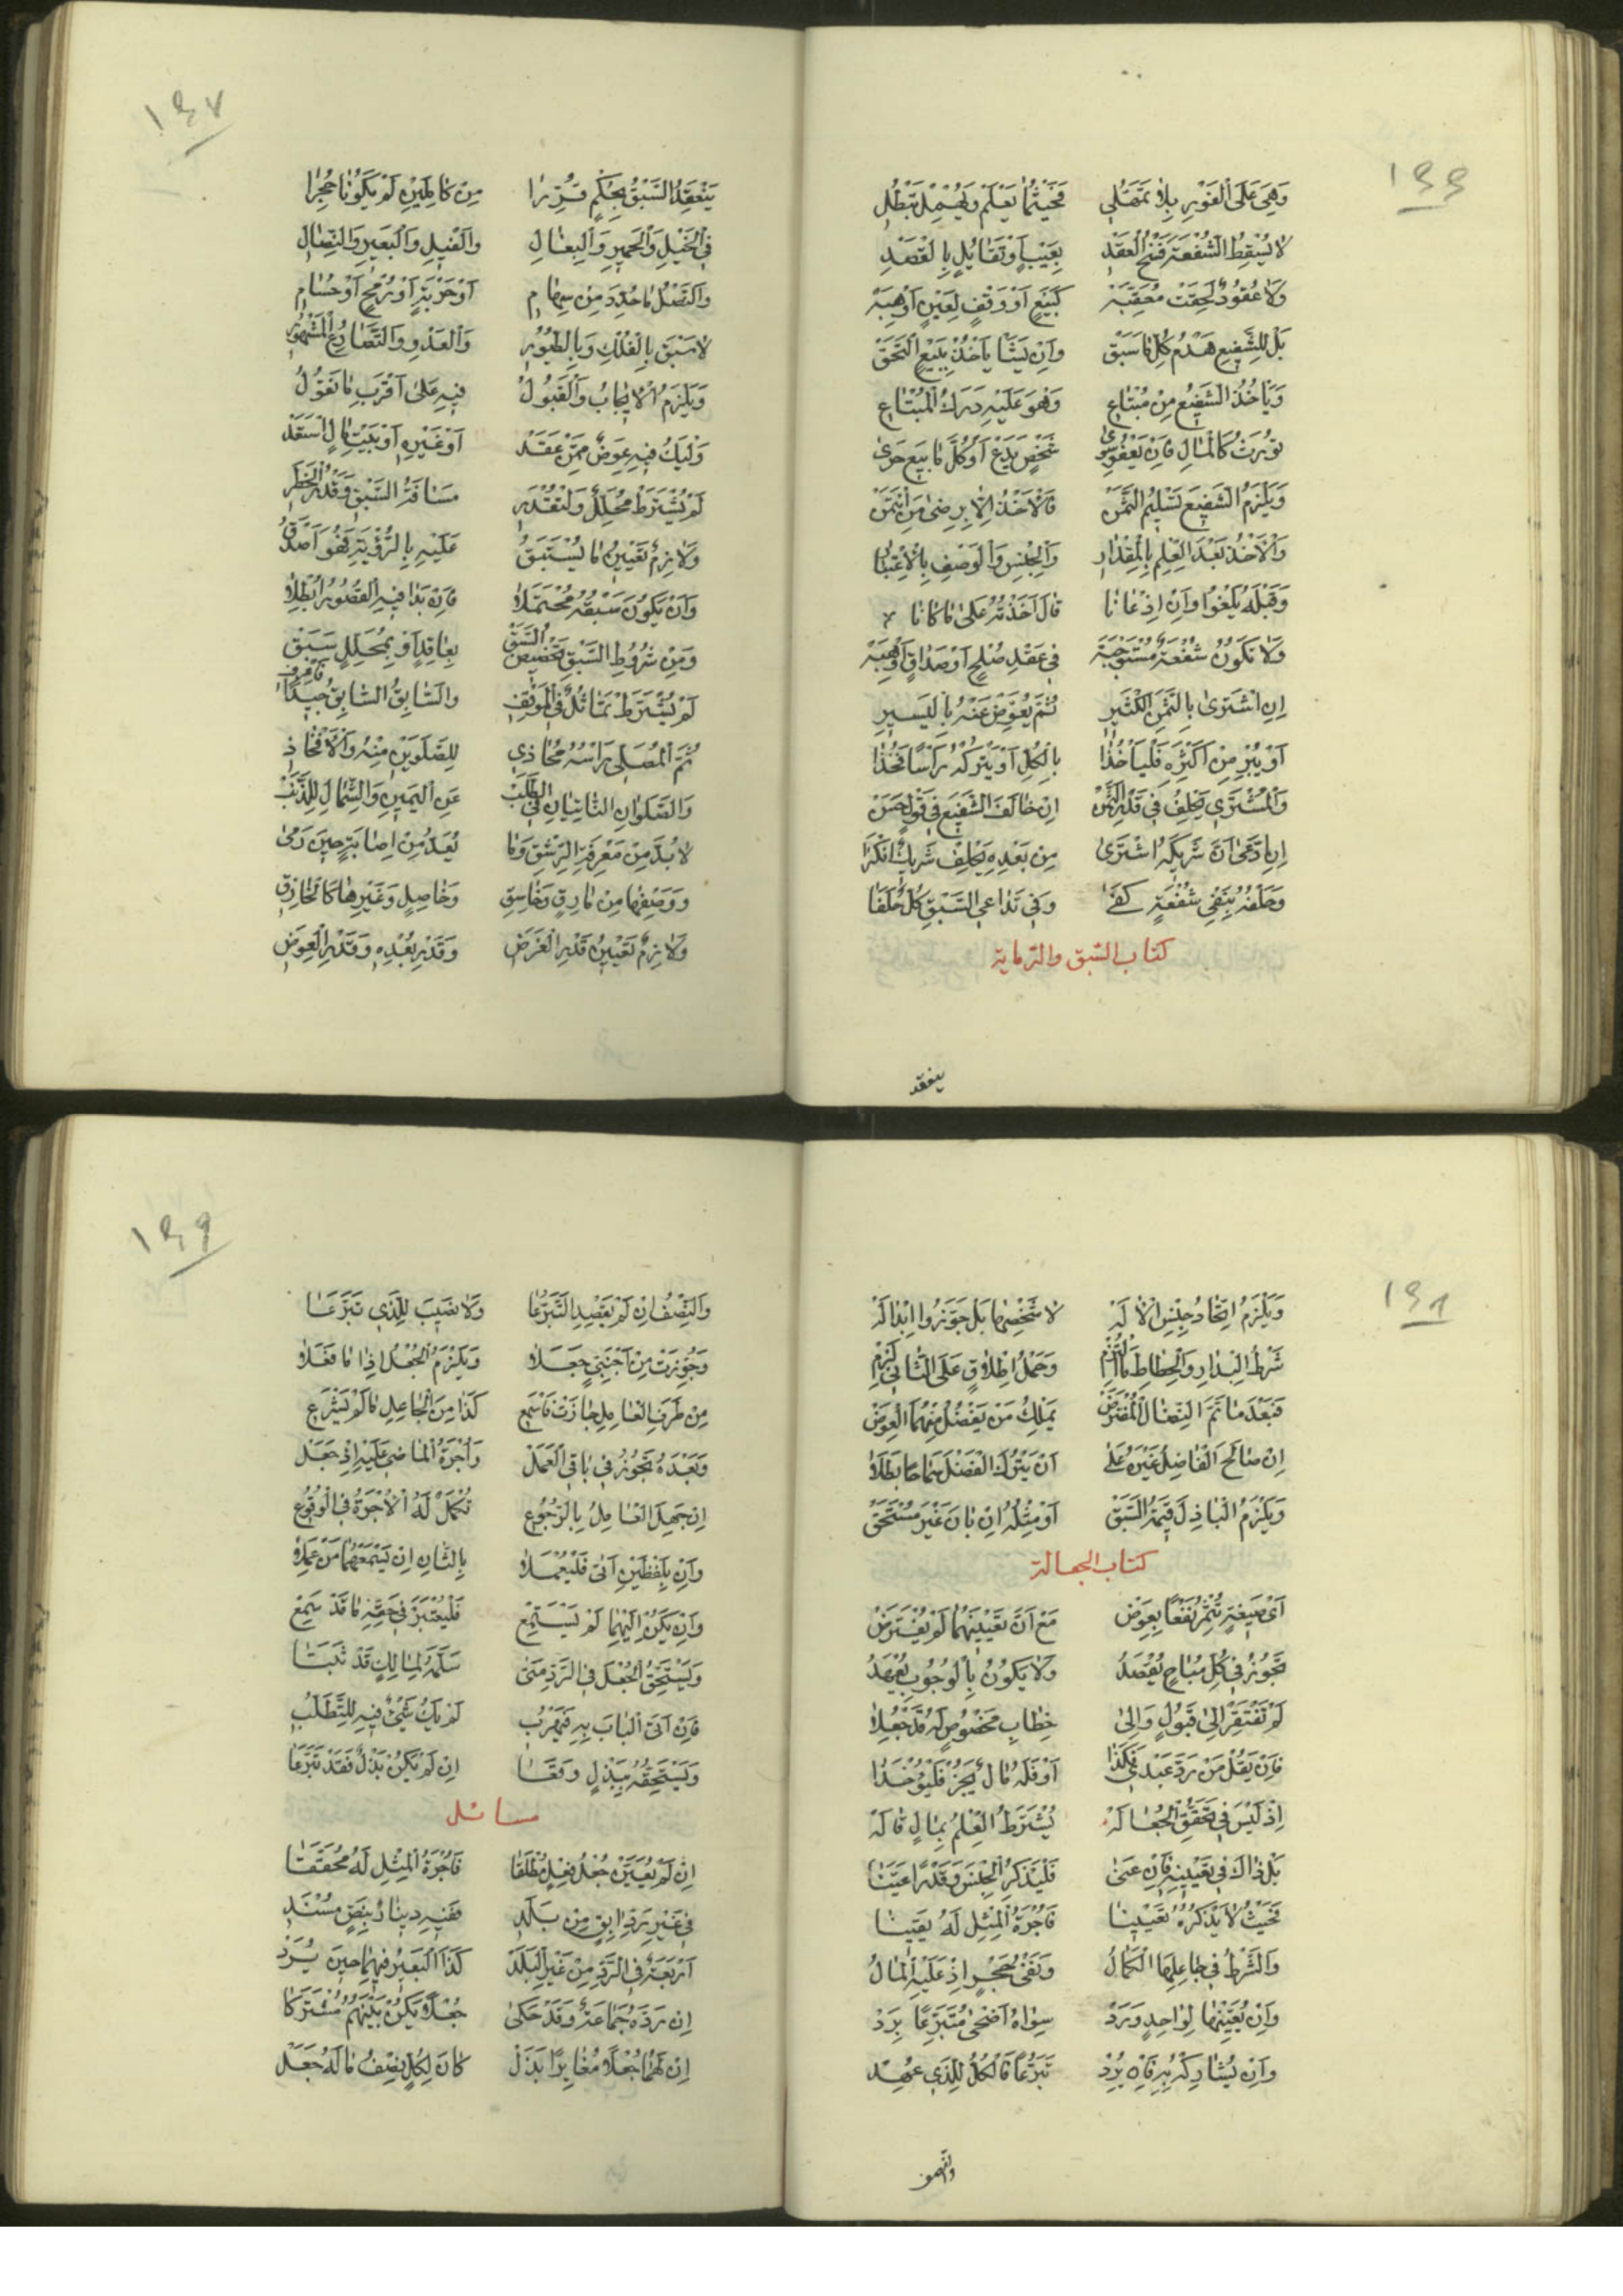 ١٤٦
وَهِيَ عَلَى الْفَوْرِ بِلَا تَمَهُّلِ فَحَيْثُمَا يَعْلَمْ وَيُهْمِلْ تَبْطُلِ
لَا يُسْقِطُ الشُّفْعَةَ فَسْخُ الْعَقْدِ بِعَيْبٍ أَوْ تَقَايُلٍ بِالْقَصْدِ
وَلَا عُقُودٌ لَحِقَتْ مُعَقِّبَة كَبَيْعٍ أَوْ وَقْفٍ لِعَيْنٍ أَوْ هِبَة
بَلْ لِلشَّفِيعِ هَدْمُ كُلِّ مَا سَبَقْ وَإِنْ يَشَأْ يَأْخُذْ بِبَيْعٍ الْتَحَقْ
وَيَأْخُذُ الشَّفِيعُ مِنْ مُبْتَاعِ وَهُوَ عَلَيْهِ دَرَكُ الْمُبْتَاعِ
تُورَثُ كَالْمَالِ فَإِنْ يَعْفُو سِوَى شَخْصٍ يَدَعْ أَوْ كُلَّ مَا بِيعَ حَوَى
وَيَلْزَمُ الشَّفِيعَ تَسْلِيمُ الثَّمَنْ فَالْأَخْذُ إِلَّا بِرِضَى مَنِ ائْتَمَنْ
وَالْأَخْذُ بَعْدَ الْعِلْمِ بِالْمِقْدَارِ وَالْجِنْسِ وَالْوَصْفِ بِالِاعْتِبَارِ
وَقَبْلَهُ يَلْغُو وَإِنْ إِذْعَانَا قَالَ أَخَذْتُهُ عَلَى مَا كَانَا
وَلَا تَكُونُ شُفْعَةٌ مُسْتَوْجَبَة فِي عَقْدِ صُلْحٍ أَوْ صَدَاقٍ أَوْ هِبَة
إِنِ اشْتَرَى بِالثَّمَنِ الْكَثِيرِ ثُمَّ يُعَوِّضْ عَنْهُ بِالْيَسِيرِ
أَوْ يُبْرِ مِنْ أَكْثَرِهِ فَلْيَأْخُذَا بِالْكُلِّ أَوْ يَتْرُكْهُ رَأْسًا فَخُذَا
وَالْمُشْتَرِي يَحْلِفُ فِي قَدْرِ الثَّمَنْ إِنْ خَالَفَ الشَّفِيعَ فِي قَوْلٍ حَسَنْ
إِنِ ادَّعَى أَنَّ شَرِيكَهُ اشْتَرَى مِنْ بَعْدِهِ يَحْلِفْ شَرِيكٌ أَنْكَرَا
وَحَلْفُهُ بِنَفْيِ شُفْعَةٍ كَفَى وَفِي تَدَاعِي السَّبْقِ كُلٌّ حَلَفَا
كتاب السبق والرماية
ينعقد
١٤٧
يَنْعَقِدُ السَّبْقُ بِحُكْمٍ قُرِّرَا مِنْ كَامِلَيْنِ لَمْ يَكُونَا حُجِرَا
فِي الْخَيْلِ وَالْحَمِيرِ وَالْبِغَالِ وَالْفِيلِ وَالْبَعِيرِ وَالنِّصَالِ
وَالنَّصْلُ مَا حُدِّدَ مِنْ سِهَامِ أَوْ حَرْبَةٍ أَوْ رُمْحٍ أَوْ حُسَامِ
لَا سَبْقَ بِالْفُلْكِ وَبِالطُّيُورِ وَالْعَدْوِ وَالتَّصَارُعِ الْمَشْهُورِ
وَيَلْزَمُ الْإِيجَابُ وَالْقَبُولُ فِيهِ عَلَى أَقْرَبِ مَا نَقُولُ
وَلْيَكُ فِيهِ عِوَضٌ مِمَّنْ عَقَدْ أَوْ غَيْرِهِ أَوْ بَيْتِ مَالٍ اسْتَعَدْ
لَمْ يُشْتَرَطْ مُحَلِّلٌ وَلْتُقْدَرِ مَسَافَةُ السَّبْقِ وَقَدْرُ الْخَطَرِ
وَلَازِمٌ تَعْيِينُ مَا يُسْتَبَقُ عَلَيْهِ بِالرُّؤْيَةِ فَهُوَ أَصْدَقُ
وَأَنْ يَكُونَ سَبْقُهُ مُحْتَمَلَا فَإِنْ بَدَا فِيهِ الْقُصُورُ أُبْطِلَا
وَمِنْ شُرُوطِ السَّبْقِ تَخْصِيصُ السَّبَقْ بِعَاقِدٍ أَوْ بِمُحَلِّلٍ سَبَقْ
لَمْ يُشْتَرَطْ تَمَاثُلٌ فِي الْمَوْقِفِ وَالسَّابِقُ السَّابِقُ جِيدًا فَاعْرِفِ
ثُمَّ الْمُصَلِّي رَأْسُهُ مُحَاذِي لِلصَّلَوَيْنِ مِنْهُ وَالْأَفْخَاذِ
وَالصَّلَوَانِ النَّاتِيَانِ فِي الطَّلَبْ عَنِ الْيَمِينِ وَالشِّمَالِ لِلذَّنَبْ
لَا بُدَّ مِنْ مَعْرِفَةِ الرَّشْقِ وَمَا يُعَدُّ مِنْ إِصَابَةٍ حِينَ رَمَى
وَوَصْفِهَا مِنْ مَارِقٍ وَخَاسِقِ وَخَاصِلٍ وَغَيْرِهَا كَالْخَازِقِ
وَلَازِمٌ تَعْيِينُ قَدْرِ الْغَرَضِ وَقَدْرِ بُعْدِهِ وَقَدْرِ الْعِوَضِ
١٤٨
وَيَلْزَمُ اتِّحَادُ جِنْسِ الْآلَة لَا شَخْصِهَا بَلْ جَوَّزُوا إِبْدَالَه
شَرْطُ الْبِدَارِ وَالْحِطَاطِ مَا الْتُزِمْ وَحَمْلُ إِطْلَاقٍ عَلَى الثَّانِي لَزِمْ
فَبَعْدَ مَا تَمَّ النِّضَالُ الْمُفْتَرَضْ يَمْلِكُ مَنْ يَفْضُلُ مِنْهُمَا الْعِوَضْ
إِنْ صَالَحَ الْفَاضِلُ غَيْرَهُ عَلَى أَنْ يَتْرُكَ الْفَضْلَ سَمَاحًا بَطَلَا
وَيَلْزَمُ الْبَاذِلَ قِيمَةُ السَّبَقْ أَوْ مِثْلُهُ إِنْ بَانَ غَيْرَ مُسْتَحَقْ
كتاب الجعالة
أَيُّ صِيغَةٍ تُثْمِرُ نَفْعًا بِعِوَضْ مَعْ أَنَّ تَعْيِينَهُمَا لَمْ يُفْتَرَضْ
تَجُوزُ فِي كُلِّ مُبَاحٍ يُقْصَدُ وَلَا يَكُونُ بِالْوُجُوبِ يُعْهَدُ
لَمْ تَفْتَقِرْ إِلَى قَبُولٍ وَإِلَى خِطَابِ مَخْصُوصٍ لَهُ قَدْ جُعِلَا
فَإِنْ يَقُلْ مَنْ رَدَّ عَبْدِي فَكَذَا أَوْ فَلَهُ مَالٌ يَجُزْ فَلْيُؤْخَذَا
إِذْ لَيْسَ فِي تَحَقُّقِ الْجُعَالَة يُشْتَرَطُ الْعِلْمُ بِمَالٍ قَالَه
بَلْ ذَاكَ فِي تَعْيِينِهِ فَإِنْ عَنَى فَلْيَذْكُرِ الْجِنْسَ وَقَدْرًا عَيَّنَا
فَحَيْثُ لَا يَذْكُرُهُ تَعْيِينَا فَأُجْرَةُ الْمِثْلِ لَهُ يَقِينَا
وَالشَّرْطُ فِي جَاعِلِهَا الْكَمَالُ وَنَفْيُ حَجْرٍ إِذْ عَلَيْهِ الْمَالُ
وَإِنْ يُعَيِّنْهَا لِوَاحِدٍ وَرَدْ سِوَاهُ أَضْحَى مُتَبَرِّعًا بِرَدْ
وَإِنْ يُشَارِكْهُ يُرِدْ تَبَرُّعًا فَالْكُلُّ لِلَّذِي عُهِدْ
١٤٩
وَالنِّصْفُ إِنْ لَمْ يَقْصِدِ التَّبَرُّعَا وَلَا نَصِيبَ لِلَّذِي تَبَرَّعَا
وَجُوِّزَتْ مِنْ أَجْنَبِيٍّ جَعَلَا وَيَلْزَمُ الْجُعْلُ إِذَا مَا فَعَلَا
مِنْ طَرَفِ الْعَامِلِ جَازَتْ فَاسْمَعِ كَذَا مِنَ الْجَاعِلِ مَا لَمْ يَشْرَعِ
وَبَعْدَهُ تَجُوزُ فِي بَاقِي الْعَمَلْ وَأُجْرَةُ الْمَاضِي عَلَيْهِ إِذْ جَعَلْ
إِنْ جَهِلَ الْعَامِلُ بِالرُّجُوعِ تُكْمَلْ لَهُ الْأُجْرَةُ فِي الْوُقُوعِ
وَإِنْ بِلَفْظَيْنِ أَتَى فَلْيُعْمَلَا بِالثَّانِ إِنْ يَسْمَعْهُمَا مَنْ عَمِلَا
وَإِنْ يَكُنْ إِلَيْهِمَا لَمْ يَسْتَمِعْ فَلْيُعْتَبَرْ فِي حَقِّهِ مَا قَدْ سَمِعْ
وَيَسْتَحِقُّ الْجُعْلَ فِي الرَّدِّ مَتَى سَلَّمَهُ لِمَالِكٍ قَدْ ثَبَتَا
فَإِنْ أَتَى الْبَابَ بِهِ فَيَهْرُبُ لَمْ يَكُ شَيْءٌ فِيهِ لِلتَّطَلُّبِ
وَيَسْتَحِقُّهُ بِبَذْلٍ وَقَعَا إِنْ لَمْ يَكُنْ بَذْلٌ فَقَدْ تَبَرَّعَا
مسائل
إِنْ لَمْ يُعَيَّنْ جُعْلُ فِعْلٍ مُطْلَقَا فَأُجْرَةُ الْمِثْلِ لَهُ مُحَقَّقَا
فِي غَيْرِ رَدِّ آبِقٍ مِنْ بَلَدِ فَفِيهِ دِينَارٌ بِنَصٍّ مُسْنَدِ
أَرْبَعَةٌ فِي الرَّدِّ مِنْ غَيْرِ الْبَلَدْ كَذَا الْبَعِيرُ فِيهِمَا حِينَ يُرَدْ
إِنْ رَدَّهُ جَمَاعَةٌ وَقَدْ حَكَى جُعْلًا يَكُنْ بَيْنَهُمُ مُشْتَرَكَا
إِنْ لَهُمَا جُعْلًا مُغَايِرًا بَذَلْ كَانَ لِكُلٍّ نِصْفُ مَا لَهُ جَعَلْ